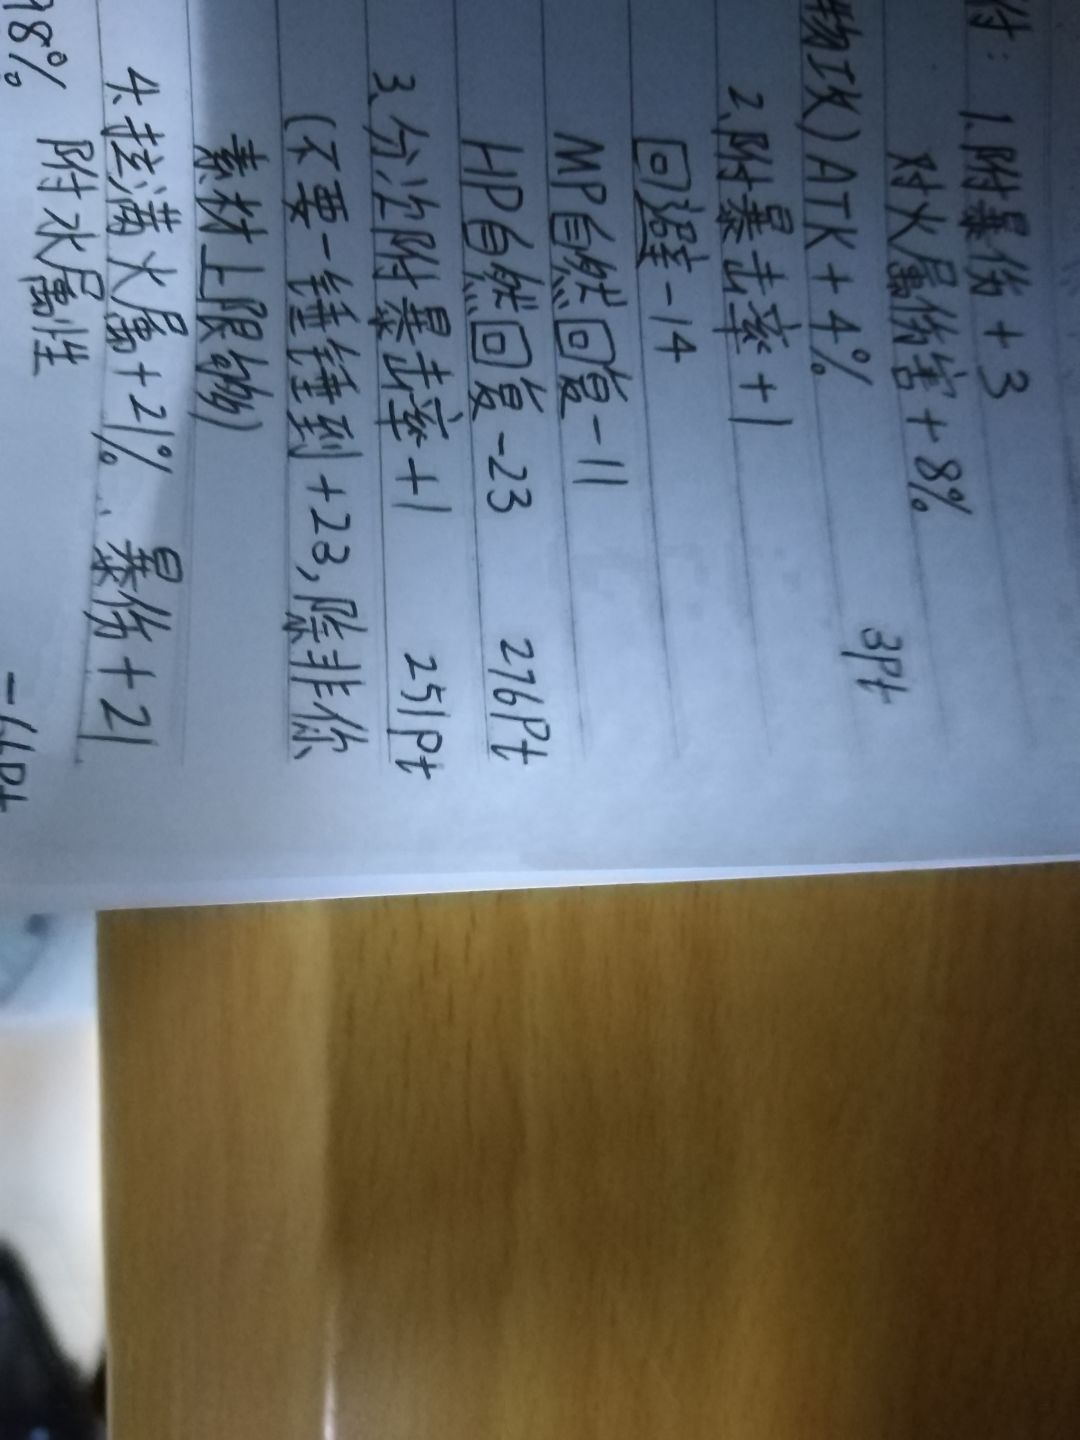 附：1.附暴伤+3
对火属伤害+8%
3pt
物攻)ATK+4%
2.附暴击率+1
回避-14
MP自然回复-11
HP自然回复-23 276Pt
3.分次附暴击率+1 251Pt
(不要一锤锤到+23,除非你
素材上限够)
4.拉满火属+21%、暴伤+21
附水属性
98%